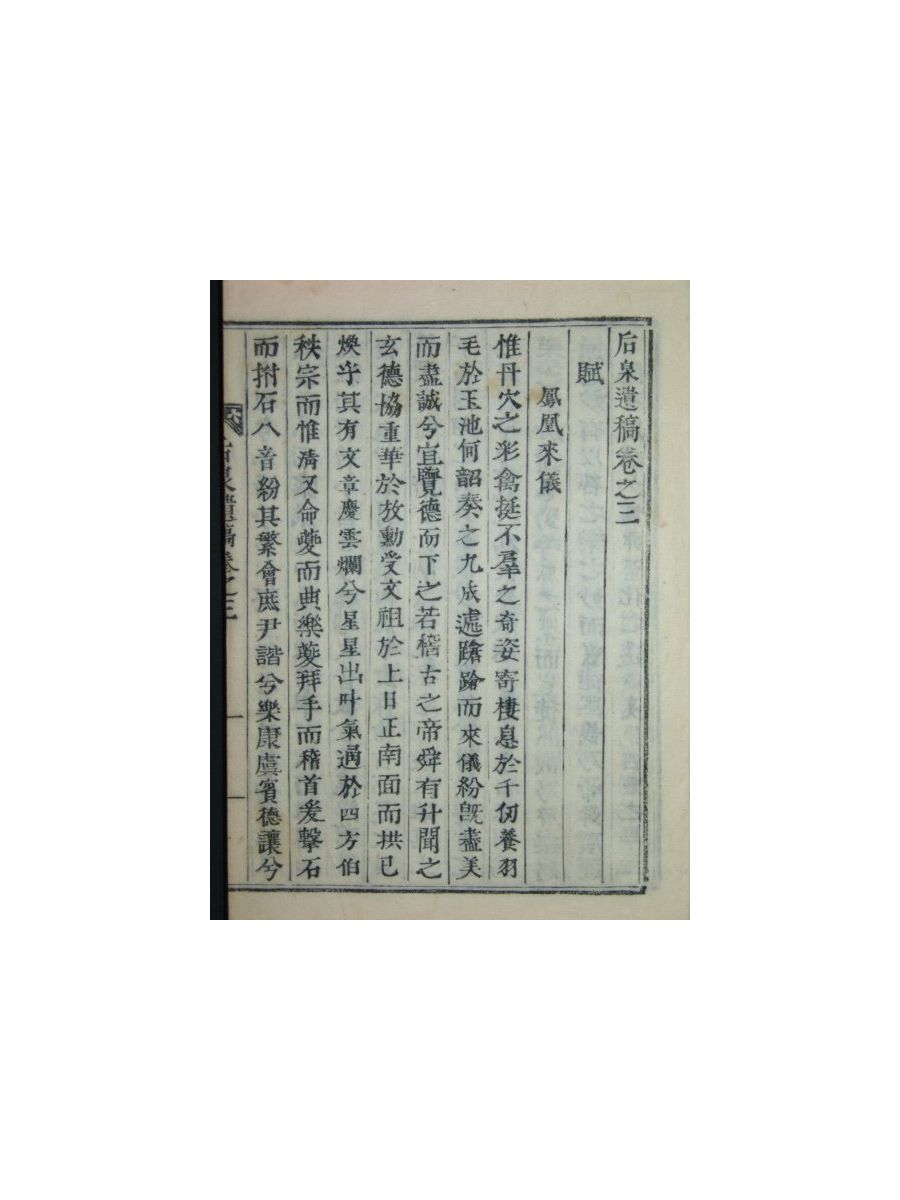 后泉遺稿卷之三
賦
鳳凰來儀
惟丹穴之彩禽挺不羣之奇姿寄棲息於千仞養羽
毛於玉池何韶奏之九成遽蹌蹌而來儀紛旣盡美
而盡誠兮宜覽德而下之若稽古之帝舜有升聞之
玄德協重華於放勳受文祖於上日正南面而拱已
煥乎其有文章慶雲爛兮星星出叶氣遍於四方伯
秩宗而惟淸又命夔而典樂夔拜手而稽首爰擊石
而拊石八音紛其繁會庶尹諧兮樂康虞賓德讓兮
后泉遺稿卷之三 一